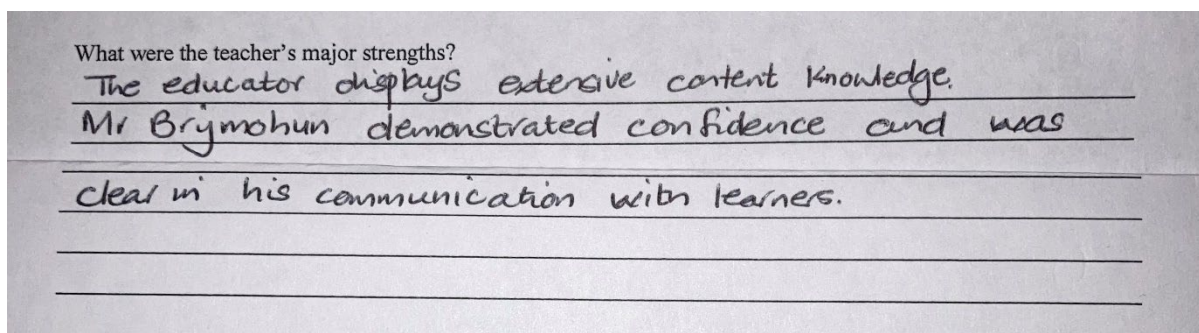 What were the teacher's major strengths?
The educator displays extensive content knowledge.
Mr Brijmohun demonstrated confidence and was
clear in his communication with learners.